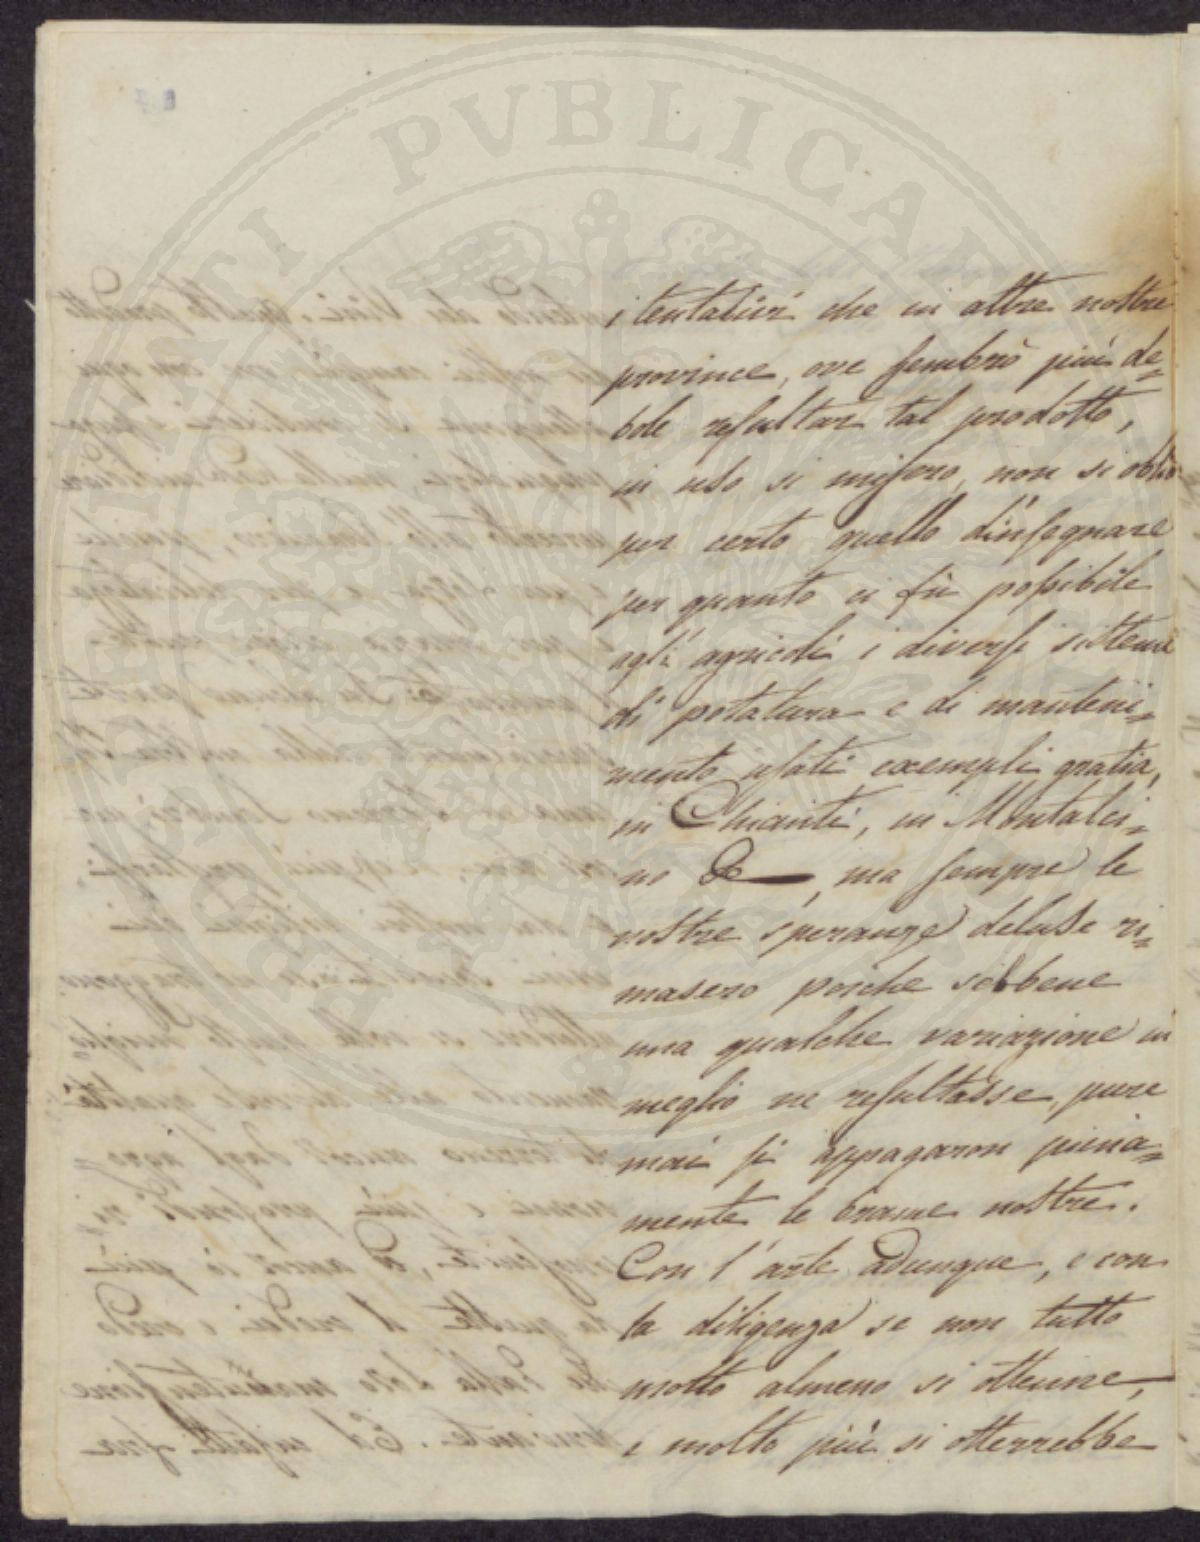 PVBLICAE
i tentativi che in altre nostre
province, ove sembrò più de=
bole resultar tal prodotto,
in uso si misero, non si obliò
per certo quello d'insegnare
per quanto ci fù possibile
agli agricoli i diversi sistemi
di potatura e di manteni=
mento usati exempli gratia,
in Chianti, in Montalci=
no &, ma sempre le
nostre speranze deluse ri=
masero poiche sebbene
una qualche variazione in
meglio ne resultasse, pure
mai si appagaron piena=
mente le brame nostre.
Con l'arte adunque, e con
la diligenza se non tutto
molto almeno si ottenne,
e molto più si otterrebbe